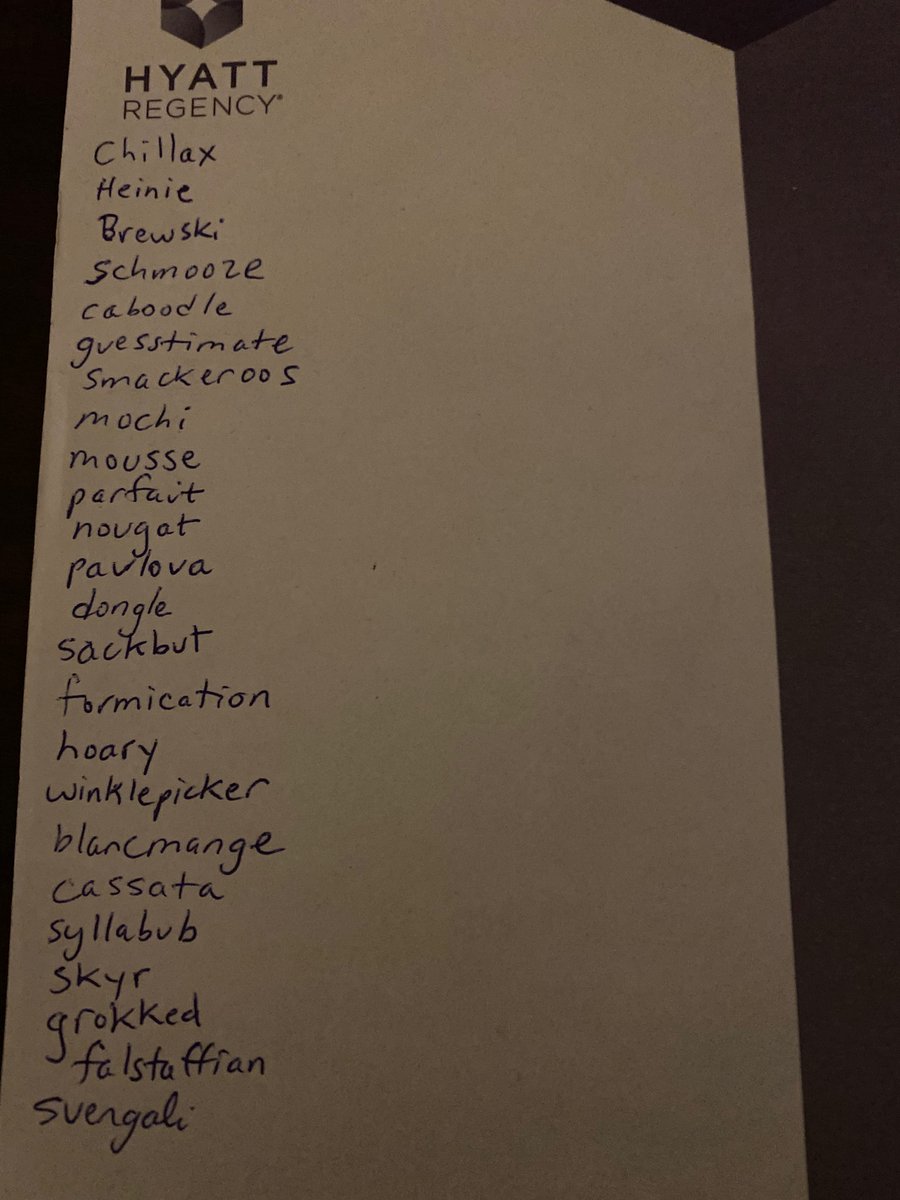 HYATT
REGENCY®
Chillax
Heinie
Brewski
Schmooze
caboodle
guesstimate
smackeroos
mochi
mousse
parfait
nougat
pavlova
dongle
sackbut
formication
hoary
winklepicker
blancmange
cassata
syllabub
skyr
grokked
falstaffian
svengali